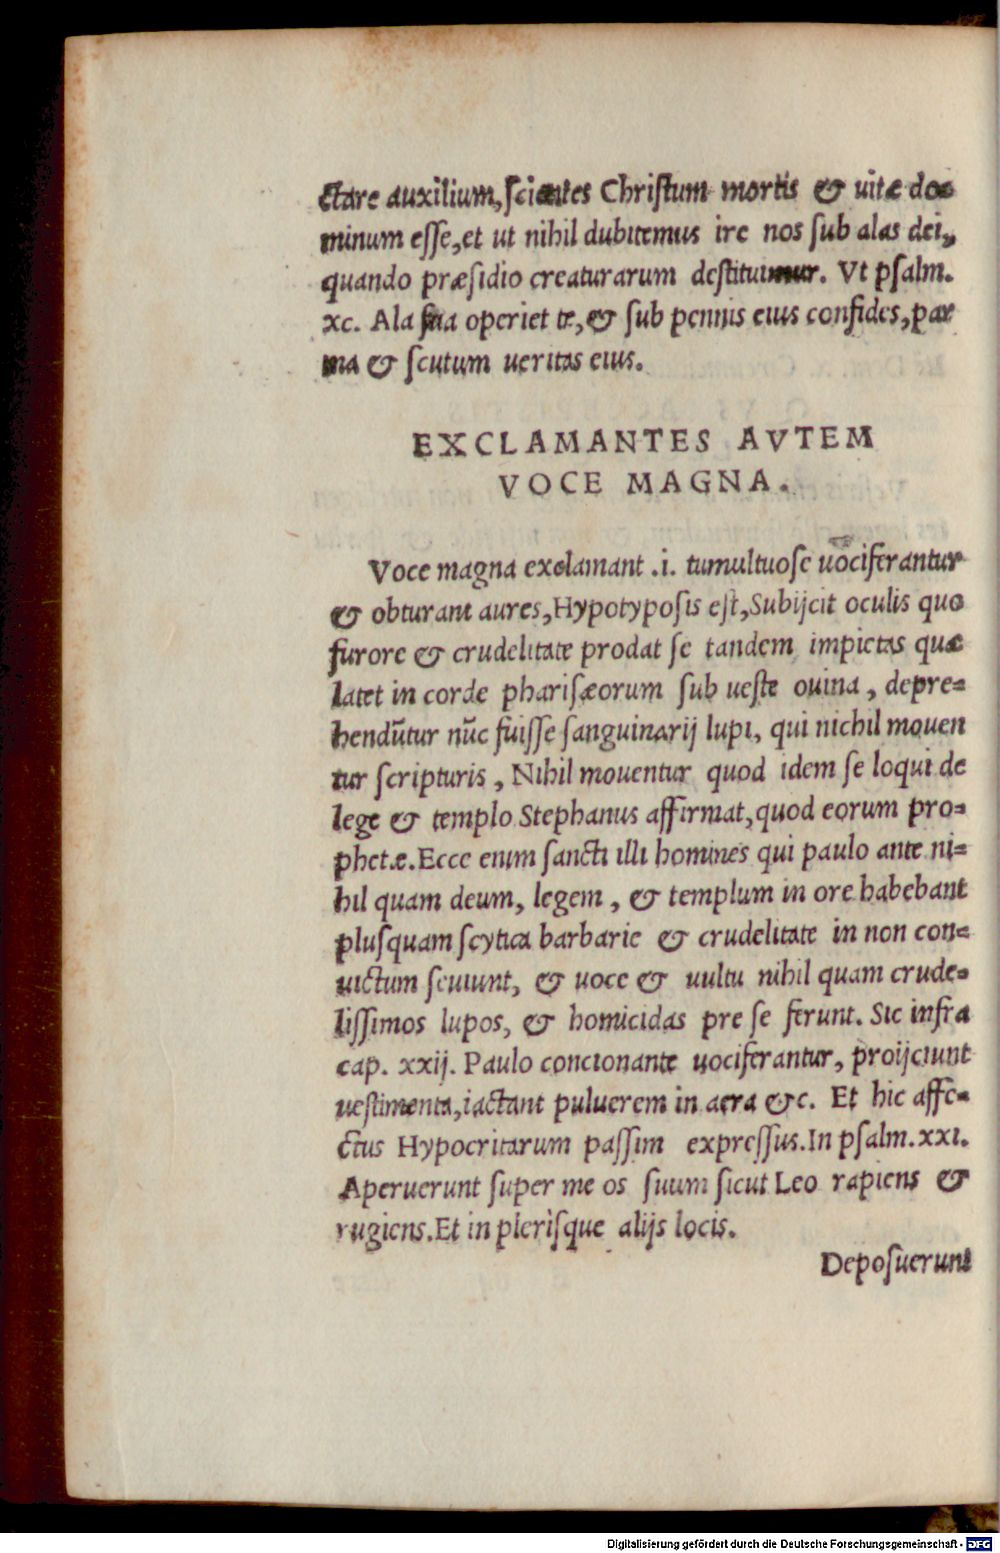 ctare auxilium, ſcientes Chriſtum mortis & uitæ do-
minum eſſe, et ut nihil dubitemus ire nos ſub alas dei,
quando præſidio creaturarum deſtituimur. Vt pſalm.
xc. Ala ſua operiet te, & ſub pennis eius confides, par
ma & ſcutum ueritas eius.
EXCLAMANTES AVTEM
VOCE MAGNA.
Voce magna exclamant .i. tumultuoſe uociferantur
& obturant aures, Hypotypoſis eſt, Subijcit oculis quo
furore & crudelitate prodat ſe tandem impietas quæ
latet in corde phariſæorum ſub ueſte ouina, depre=
hendūtur nūc fuiſſe ſanguinarij lupi, qui nichil mouen
tur ſcripturis, Nihil mouentur quod idem ſe loqui de
lege & templo Stephanus affirmat, quod eorum pro=
phetæ. Ecce enim ſancti illi homines qui paulo ante ni=
hil quam deum, legem, & templum in ore habebant
pluſquam ſcytica barbarie & crudelitate in non con=
uictum ſeuiunt, & uoce & uultu nihil quam crude=
liſſimos lupos, & homicidas pre ſe ferunt. Sic infra
cap. xxij. Paulo concionante uociferantur, proijciunt
ueſtimenta, iactant puluerem in aera &c. Et hic affe=
ctus Hypocritarum paſſim expreſſus. In pſalm. xxi.
Aperuerunt ſuper me os ſuum ſicut Leo rapiens &
rugiens. Et in pleriſque alijs locis.
Depoſuerunt
Digitalisierung gefördert durch die Deutsche Forschungsgemeinschaft - DFG